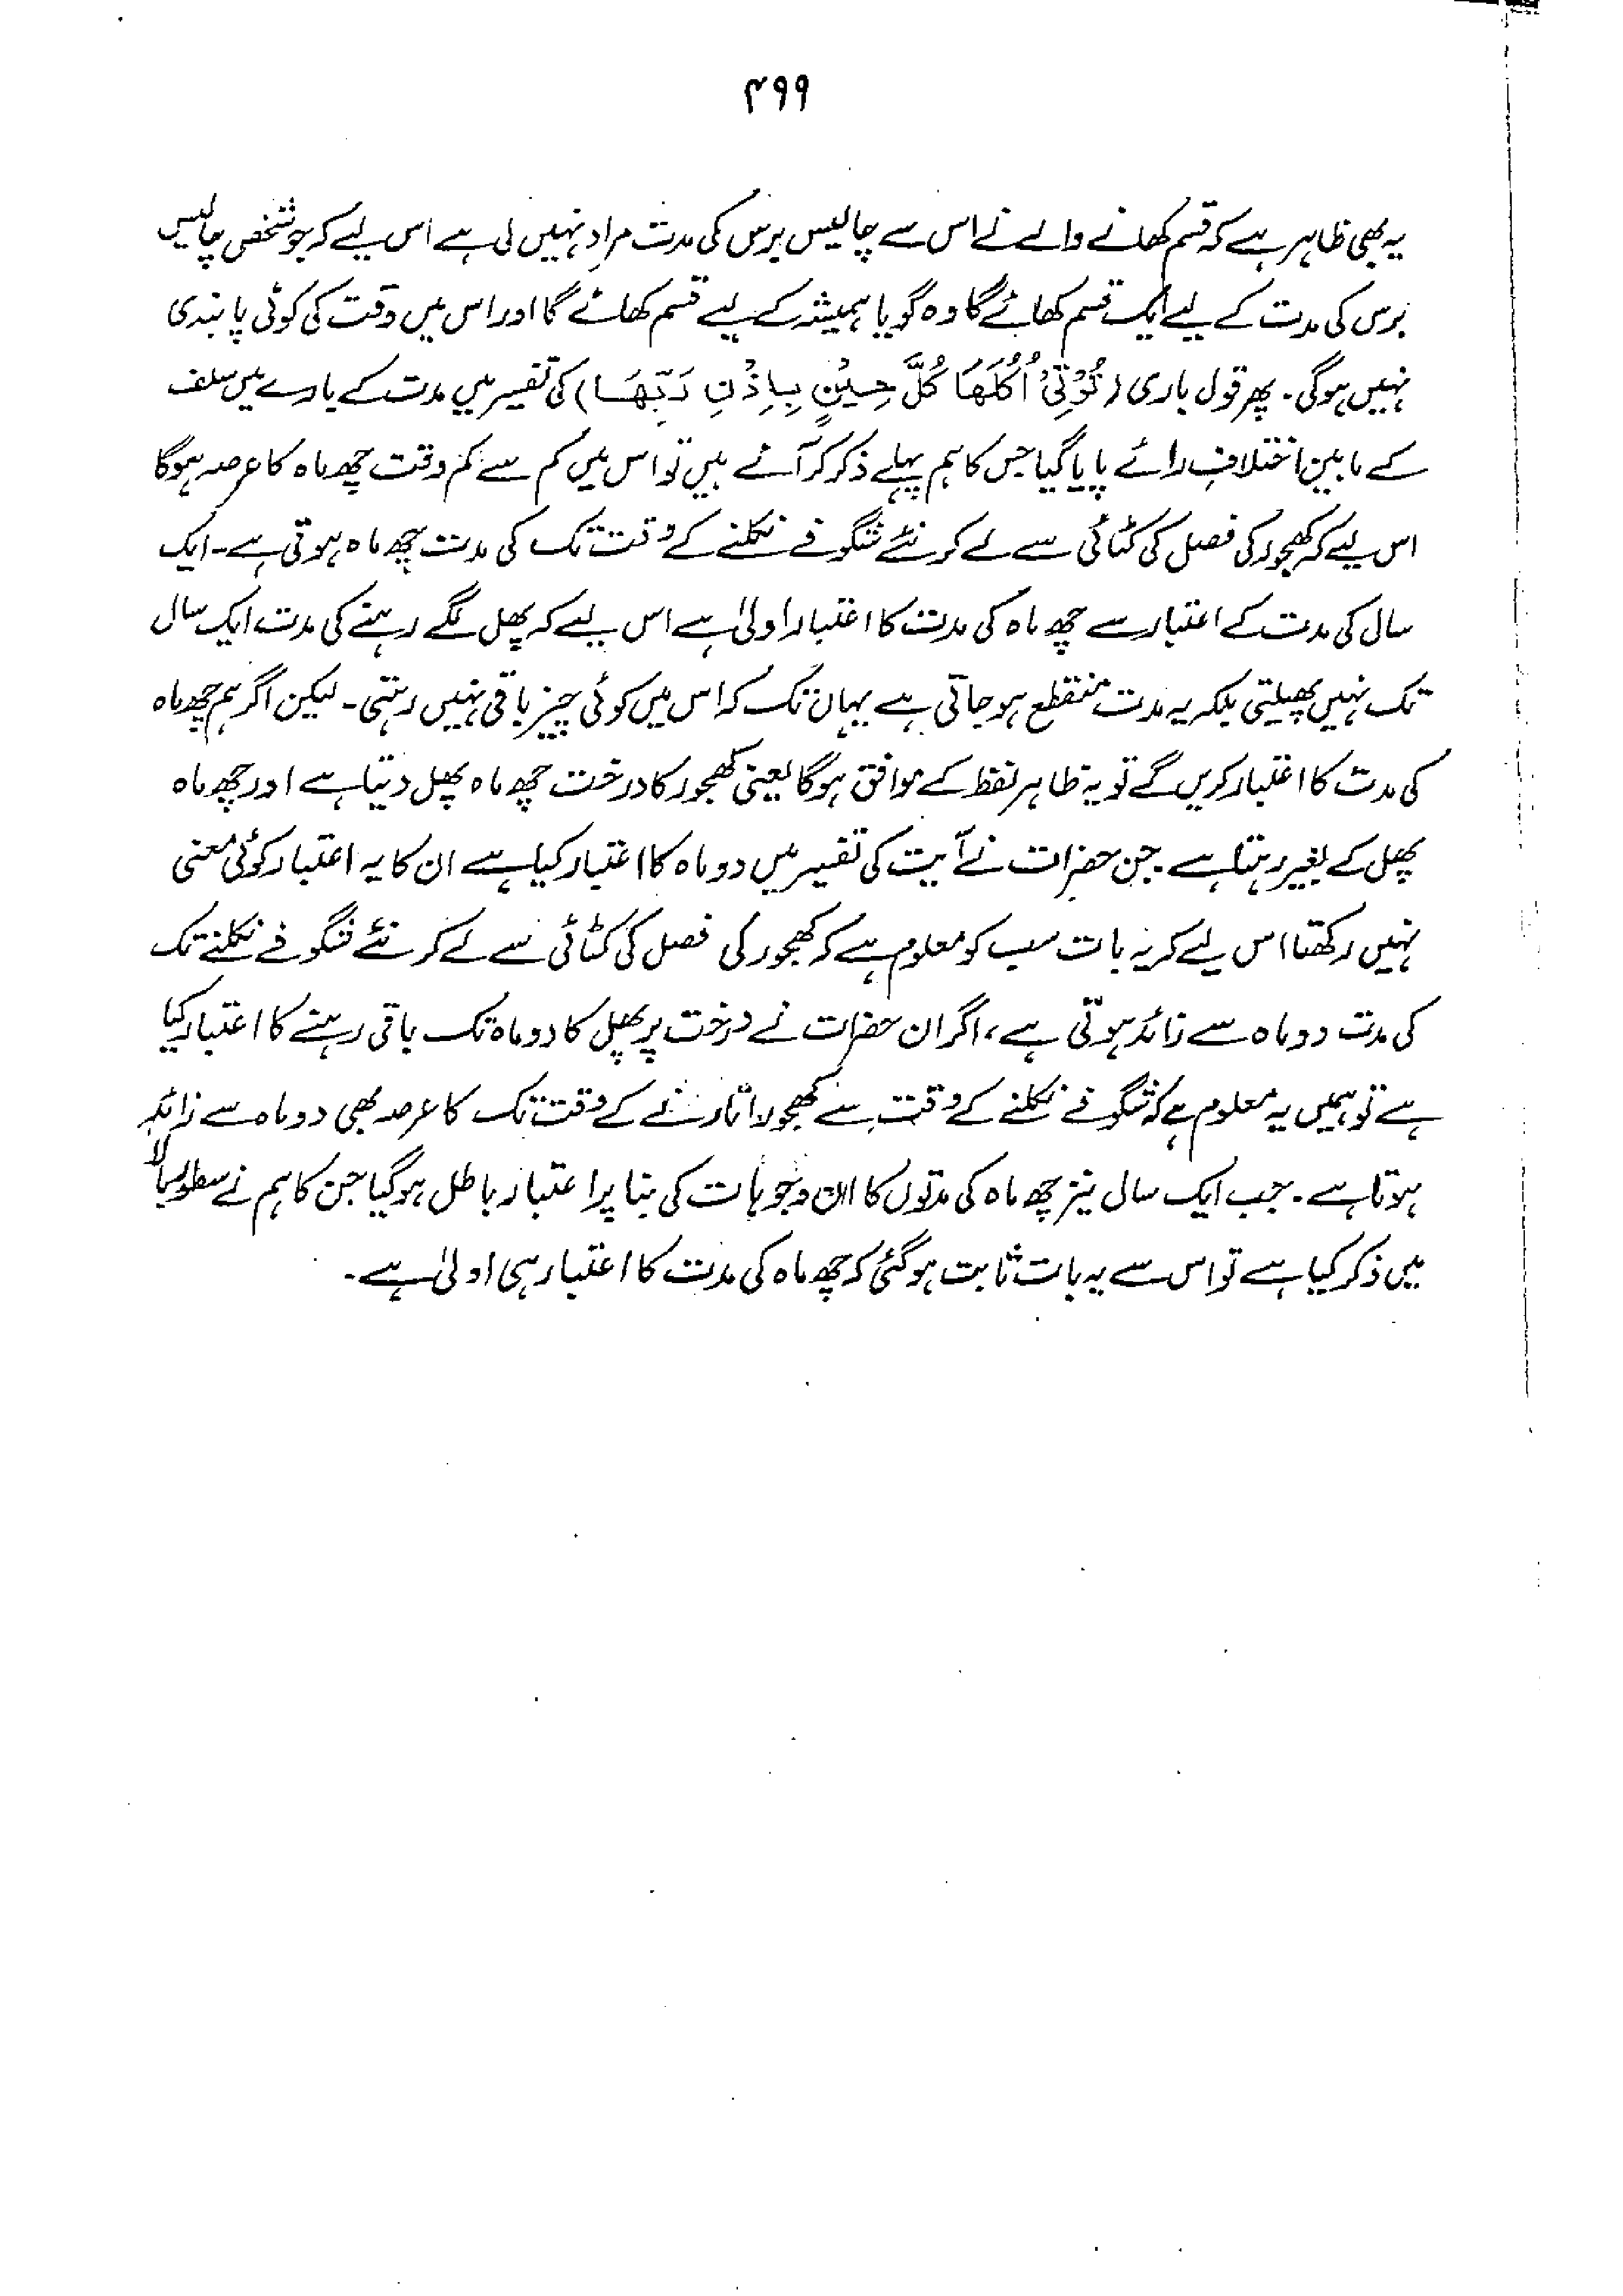 ۴۹۹
یہ بھی ظاہر ہے کہ قسم کھانے والے نے اس سے چالیس برس کی مدت مراد نہیں لی ہے اس لیے کہ جو شخص چالیس
برس کی مدت کے لیے ایک قسم کھائے گا وہ گویا ہمیشہ کے لیے قسم کھائے گا اور اس میں وقت کی کوئی پابندی
نہیں ہوگی۔ پھر قول باری (تُؤْتِیْ اُکُلَهَا کُلَّ حِیْنٍ بِاِذْنِ رَبِّهَا) کی تفسیر میں مدت کے بارے میں سلف
کے مابین اختلافِ رائے پایا گیا جس کا ہم پہلے ذکر کر آئے ہیں تو اس میں کم سے کم وقت چھ ماہ کا عرصہ ہوگا
اس لیے کہ کھجور کی فصل کی کٹائی سے لے کر نئے شگوفے نکلنے کے وقت تک کی مدت چھ ماہ ہوتی ہے۔ ایک
سال کی مدت کے اعتبار سے چھ ماہ کی مدت کا اعتبار اولیٰ ہے اس لیے کہ پھل لگے رہنے کی مدت ایک سال
تک نہیں پھیلتی بلکہ یہ مدت منقطع ہو جاتی ہے یہاں تک کہ اس میں کوئی چیز باقی نہیں رہتی۔ لیکن اگر ہم چھ ماہ
کی مدت کا اعتبار کریں گے تو یہ ظاہر لفظ کے موافق ہوگا یعنی کھجور کا درخت چھ ماہ پھل دیتا ہے اور چھ ماہ
پھل کے بغیر رہتا ہے۔ جن حضرات نے آیت کی تفسیر میں دو ماہ کا اعتبار کیا ہے ان کا یہ اعتبار کوئی معنی
نہیں رکھتا اس لیے کہ یہ بات سب کو معلوم ہے کہ کھجور کی فصل کی کٹائی سے لے کر نئے شگوفے نکلنے تک
کی مدت دو ماہ سے زائد ہوتی ہے، اگر ان حضرات نے درخت پر پھل کا دو ماہ تک باقی رہنے کا اعتبار کیا
ہے تو ہمیں یہ معلوم ہے کہ شگوفے نکلنے کے وقت سے کھجور اتارنے کے وقت تک کا عرصہ بھی دو ماہ سے زائد
ہوتا ہے۔ جب ایک سال نیز چھ ماہ کی مدتوں کا ان وجوہات کی بنا پر اعتبار باطل ہوگیا جن کا ہم نے سطور بالا
میں ذکر کیا ہے تو اس سے یہ بات ثابت ہو گئی کہ چھ ماہ کی مدت کا اعتبار ہی اولیٰ ہے۔